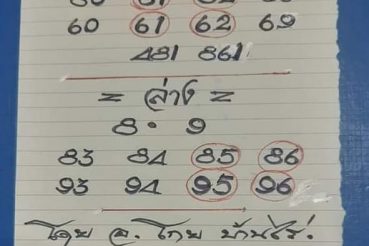 60 61 62 69
481 861
= ล่าง =
8 · 9
83 84 85 86
93 94 95 96
โดย อ. โกย บ้านไร่.